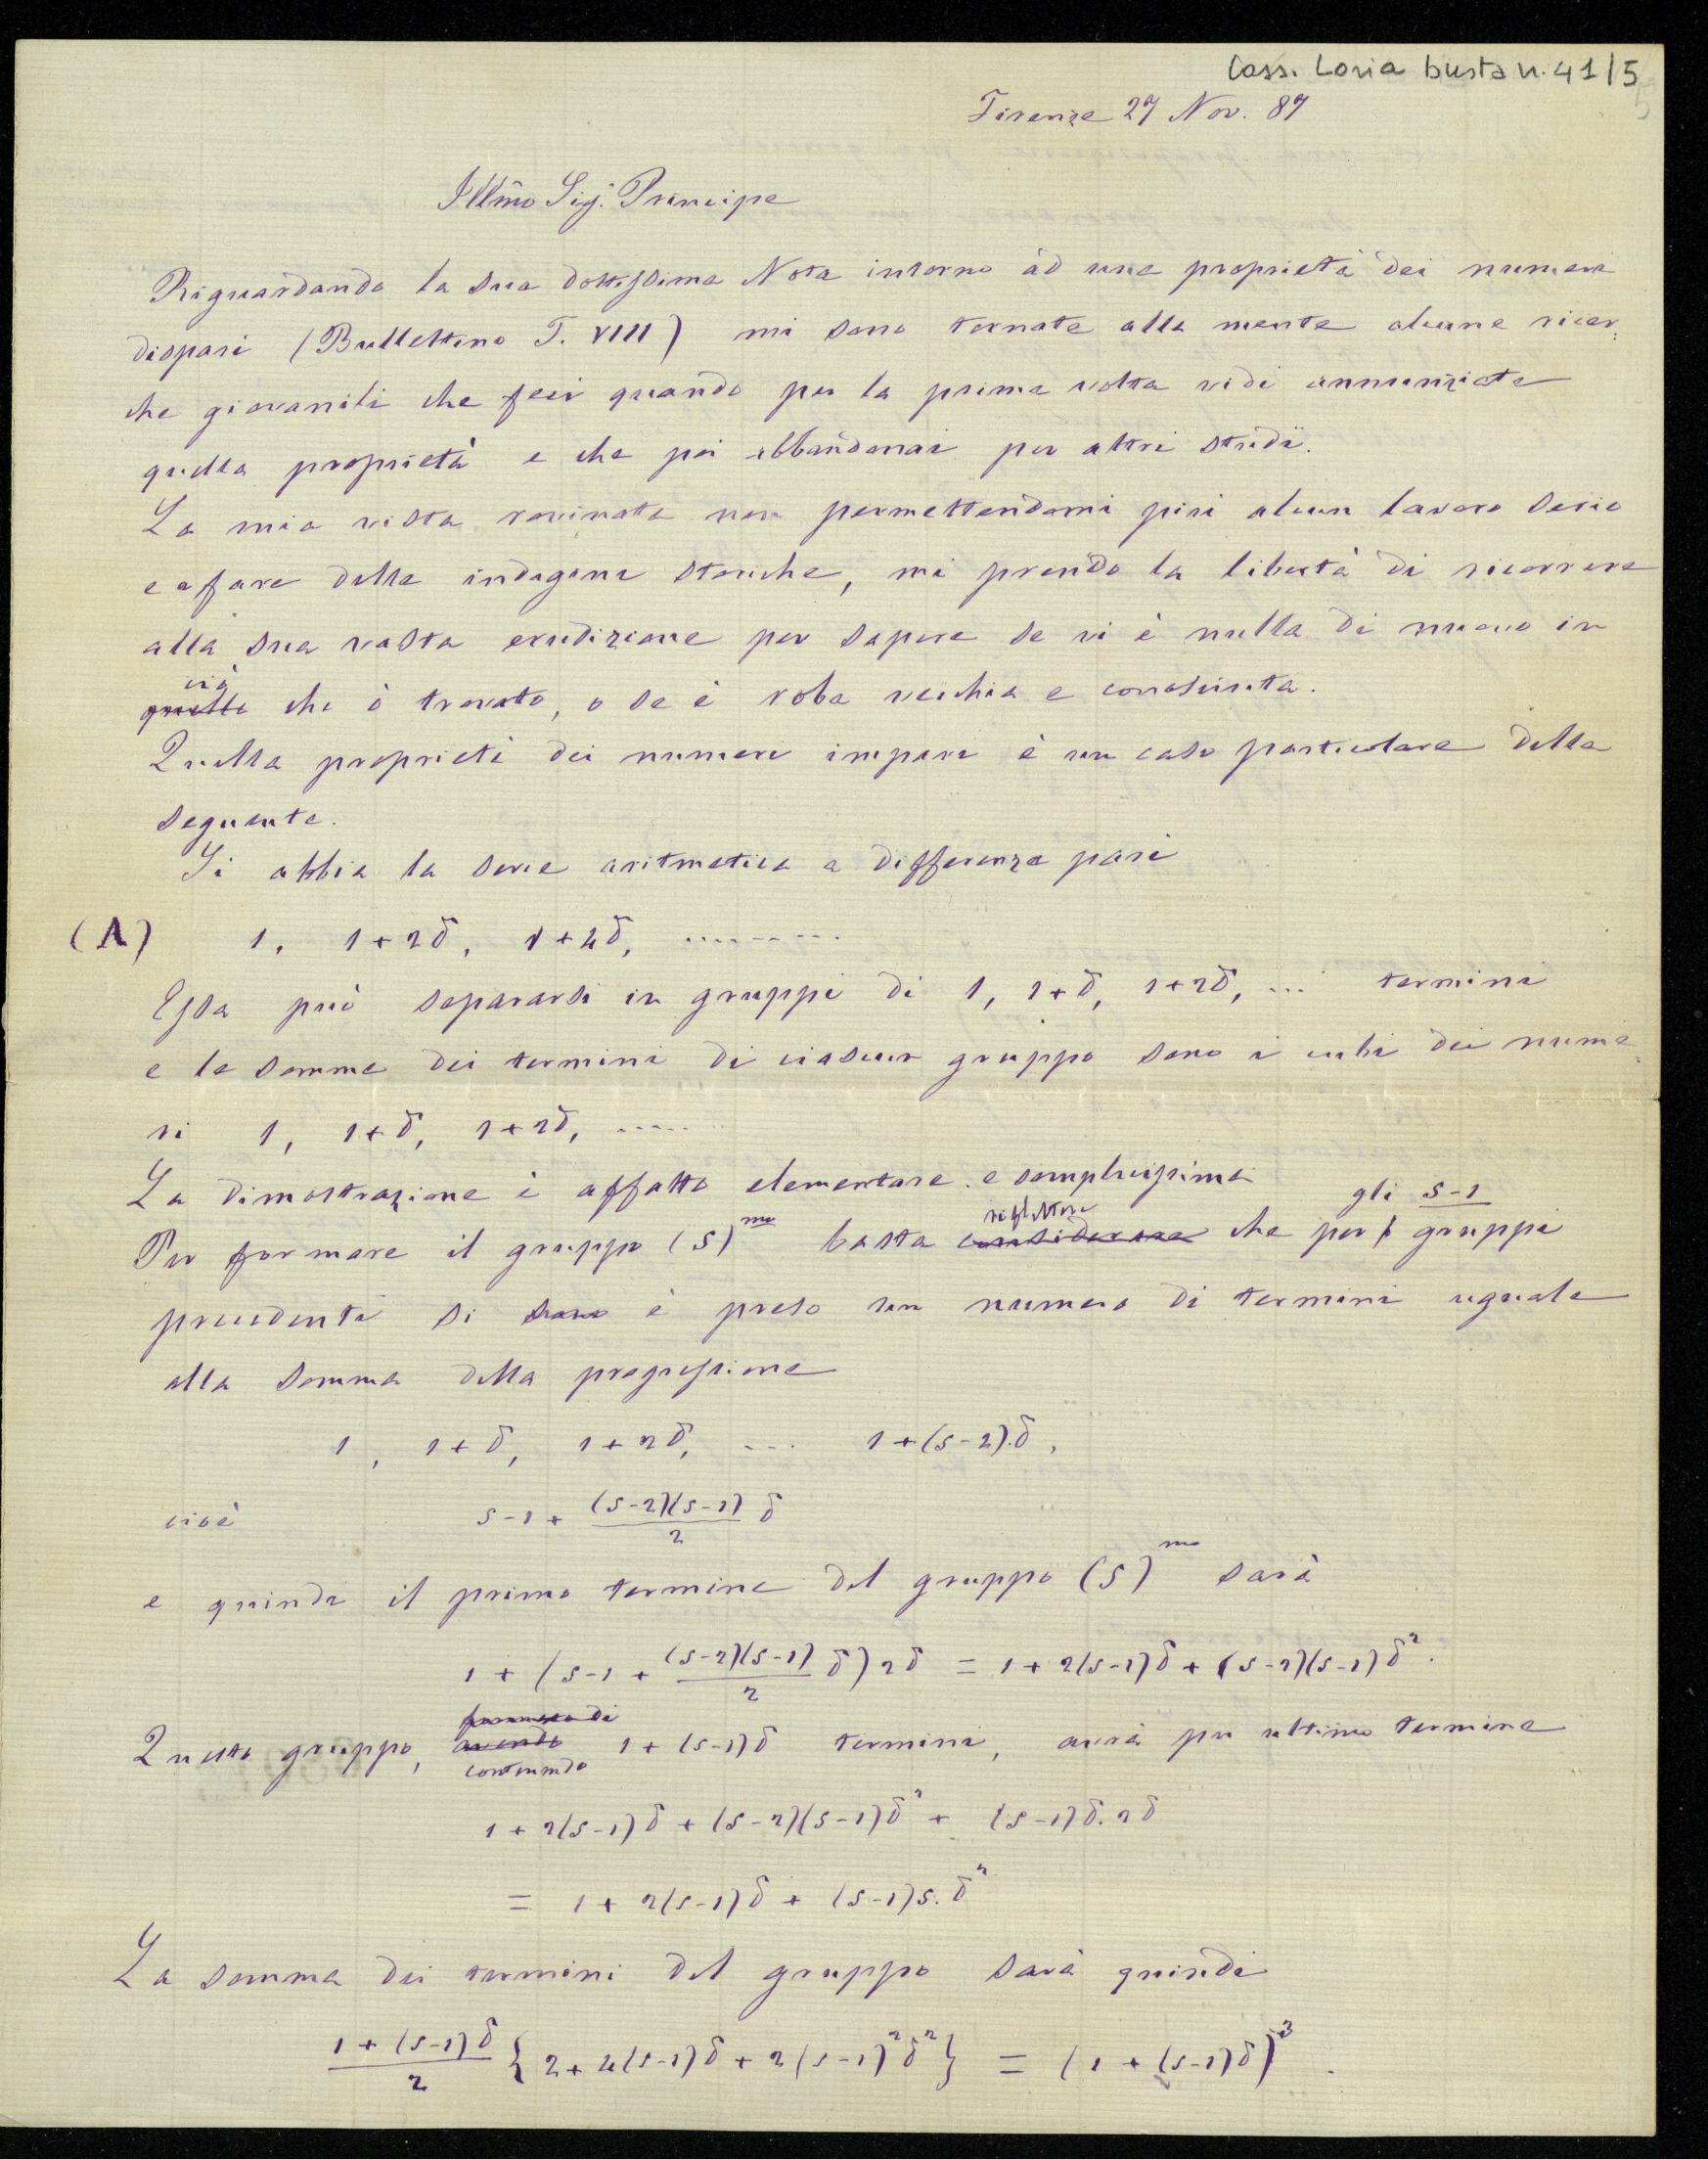 Cass. Loria busta n. 41/5
5
Firenze 27 Nov. 87
Illmo Sig. Principe
Riguardando la sua dottissima Nota intorno ad una proprietà dei numeri
dispari (Bullettino T. VIII) mi sono tornate alla mente alcune ricer:
che giovanili che feci quando per la prima volta vidi annunziata
quella proprietà e che poi abbandonai per altri studi.
La mia vista rovinata non permettendomi più alcun lavoro serio
e a fare delle indagini storiche, mi prendo la libertà di ricorrere
alla sua vasta erudizione per sapere se vi è nulla di nuovo in
ciò
quello che ò trovato, o se è roba vecchia e conosciuta.
Quella proprietà dei numeri impari è un caso particolare della
seguente.
Si abbia la serie aritmetica a differenza pari
(A) 1, 1+2δ, 1+4δ, ..........
Essa può separarsi in gruppi di 1, 1+δ, 1+2δ, ... termini
e le somme dei termini di ciascun gruppo sono i cubi dei nume:
ri 1, 1+δ, 1+2δ, .....
La dimostrazione è affatto elementare e semplicissima
riflettere gli s-1
Per formare il gruppo (s)^mo basta considerare che per gruppi
precedenti si sono è preso un numero di termini uguale
alla somma della progressione
1, 1+δ, 1+2δ, .... 1+(s-2).δ,
cioè s-1 + (s-2)(s-1)/2 δ
e quindi il primo termine del gruppo (s)^mo sarà
1 + (s-1 + (s-2)(s-1)/2 δ) 2δ = 1 + 2(s-1)δ + (s-2)(s-1)δ².
Questo gruppo, avendo 1+(s-1)δ termini, avrà per ultimo termine
contenendo
1 + 2(s-1)δ + (s-2)(s-1)δ² + (s-1)δ.2δ
= 1 + 2(s-1)δ + (s-1)s.δ²
La somma dei termini del gruppo sarà quindi
1+(s-1)δ/2 {2 + 4(s-1)δ + 2(s-1)²δ²} = (1 + (s-1)δ)³.